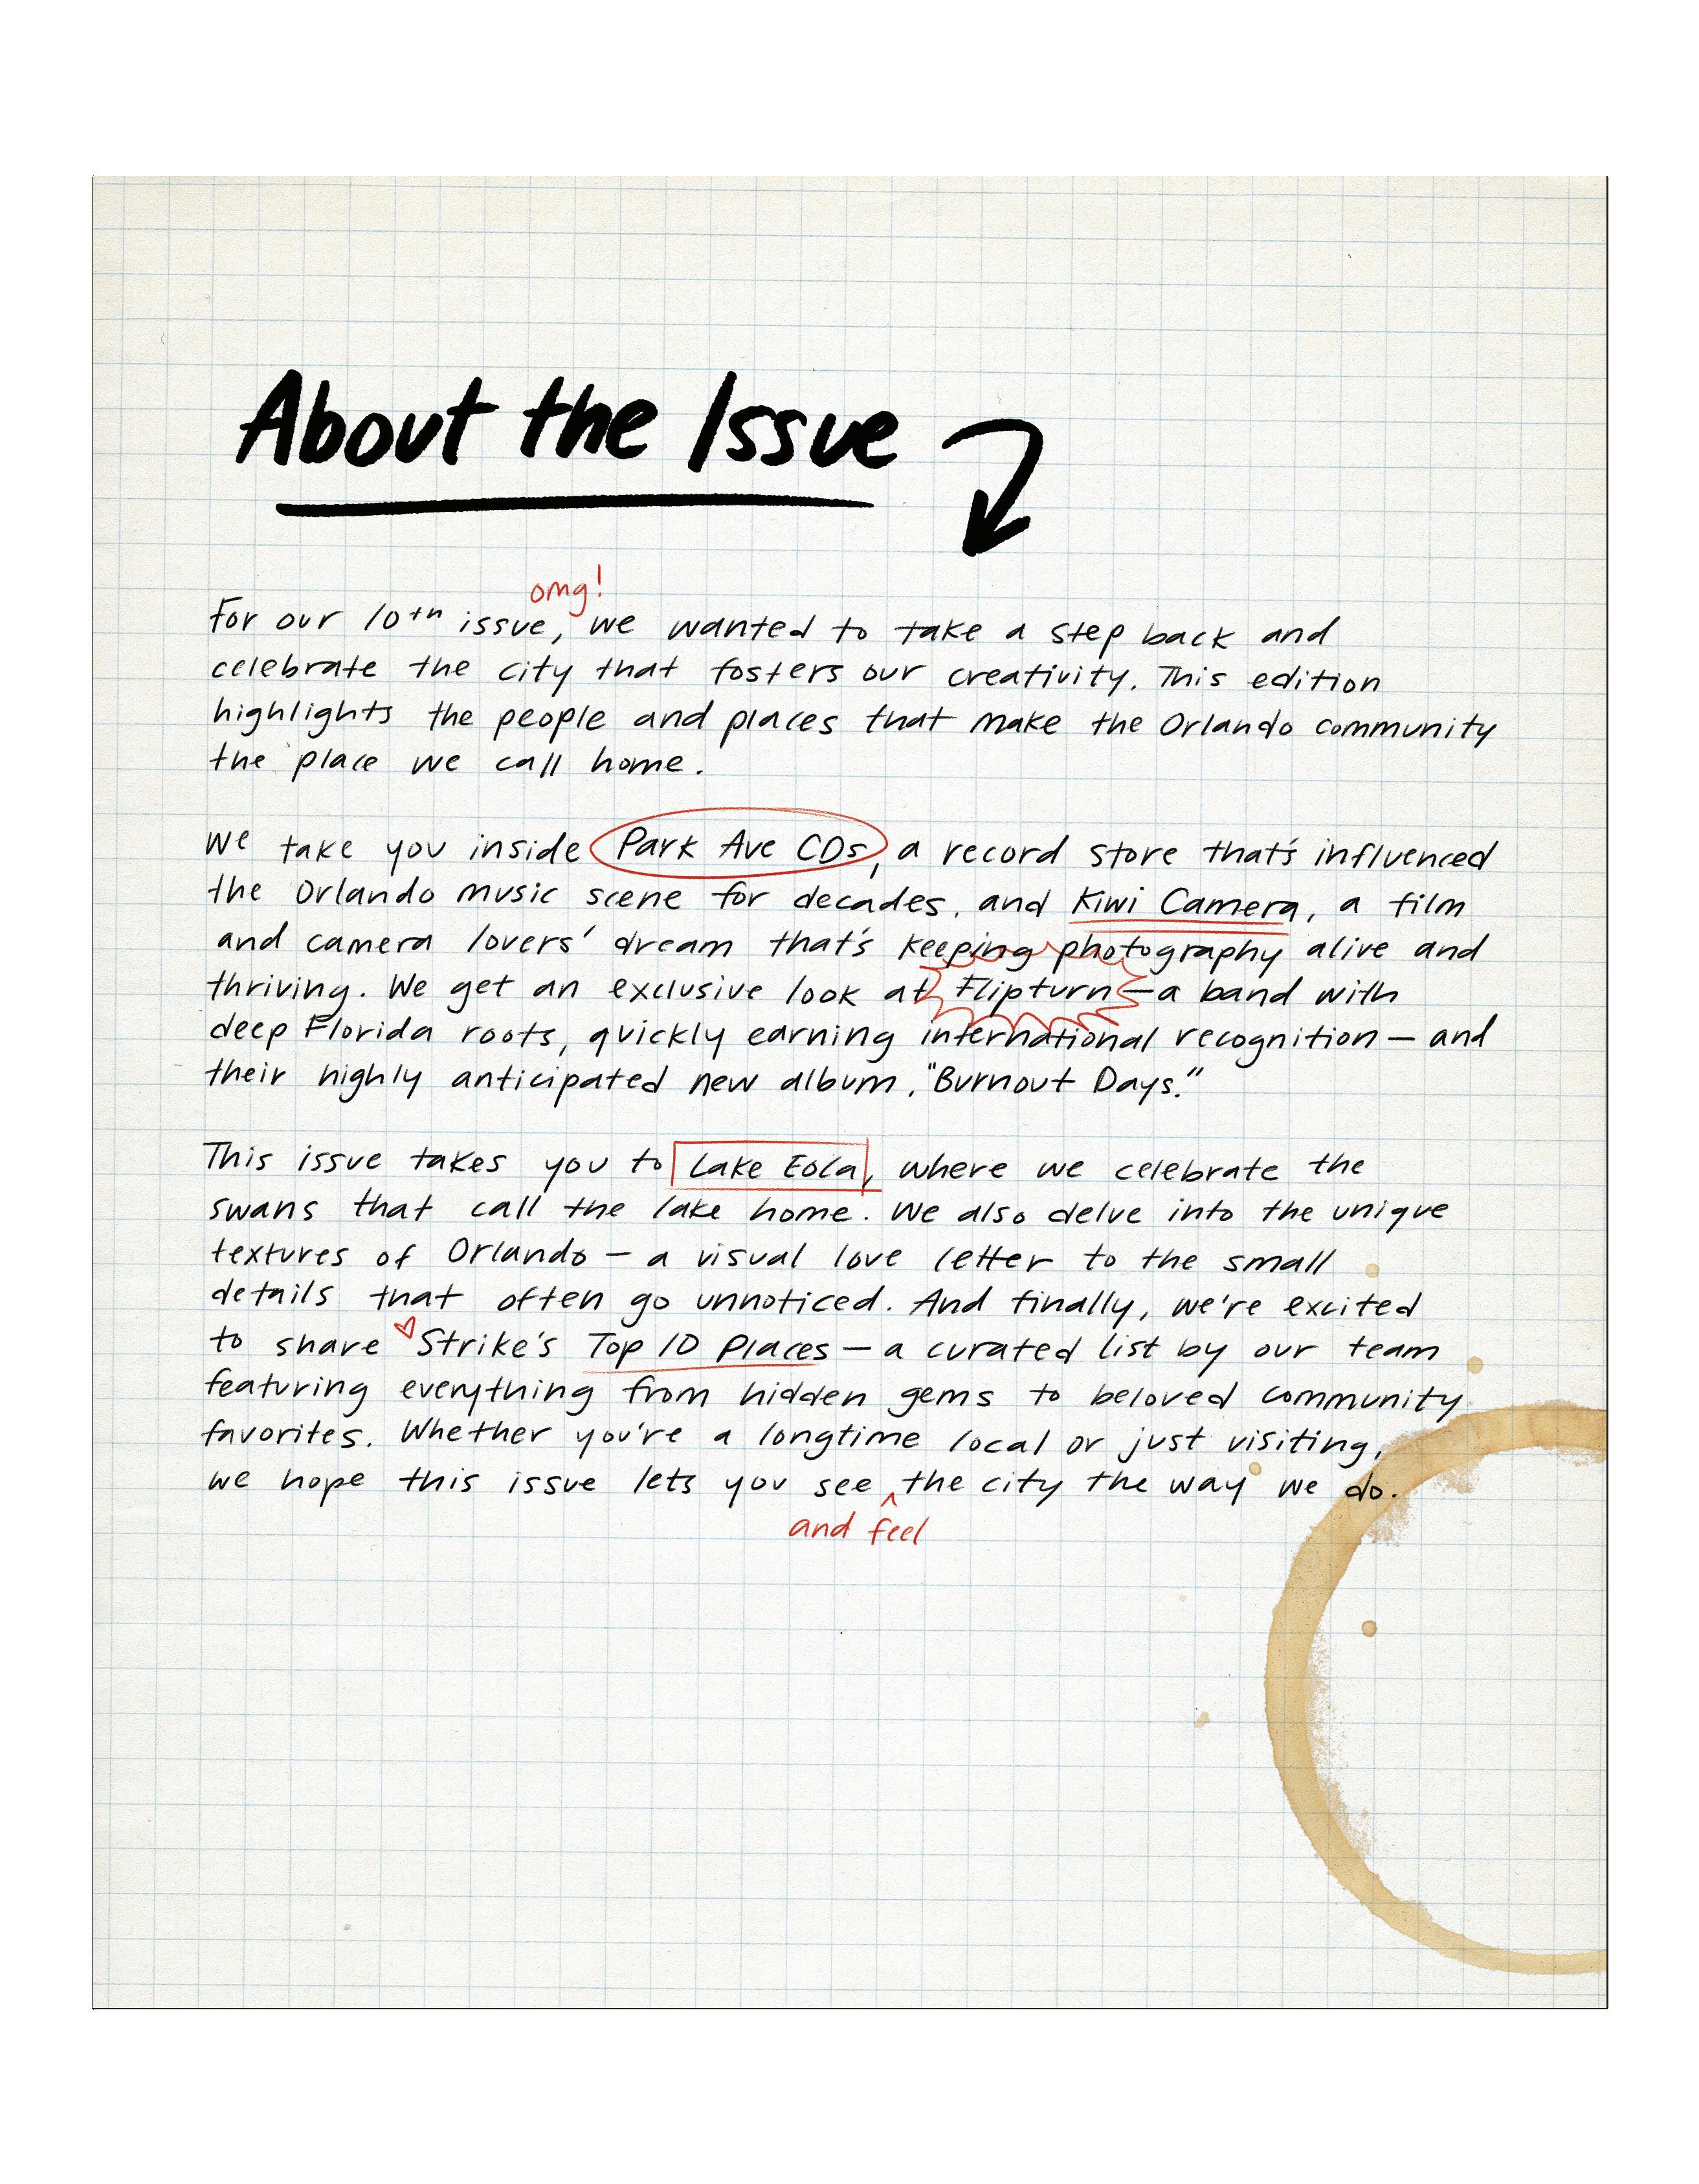 About the Issue
omg!
For our 10th issue, we wanted to take a step back and
celebrate the city that fosters our creativity. This edition
highlights the people and places that make the Orlando community
the place we call home.
We take you inside Park Ave CDs, a record store that's influenced
the Orlando music scene for decades, and Kiwi Camera, a film
and camera lovers' dream that's keeping photography alive and
thriving. We get an exclusive look at Flipturn—a band with
deep Florida roots, quickly earning international recognition — and
their highly anticipated new album, "Burnout Days."
This issue takes you to Lake Eola, where we celebrate the
swans that call the lake home. We also delve into the unique
textures of Orlando — a visual love letter to the small
details that often go unnoticed. And finally, we're excited
to share Strike's Top 10 Places — a curated list by our team
featuring everything from hidden gems to beloved community
favorites. Whether you're a longtime local or just visiting,
we hope this issue lets you see the city the way we do.
and feel